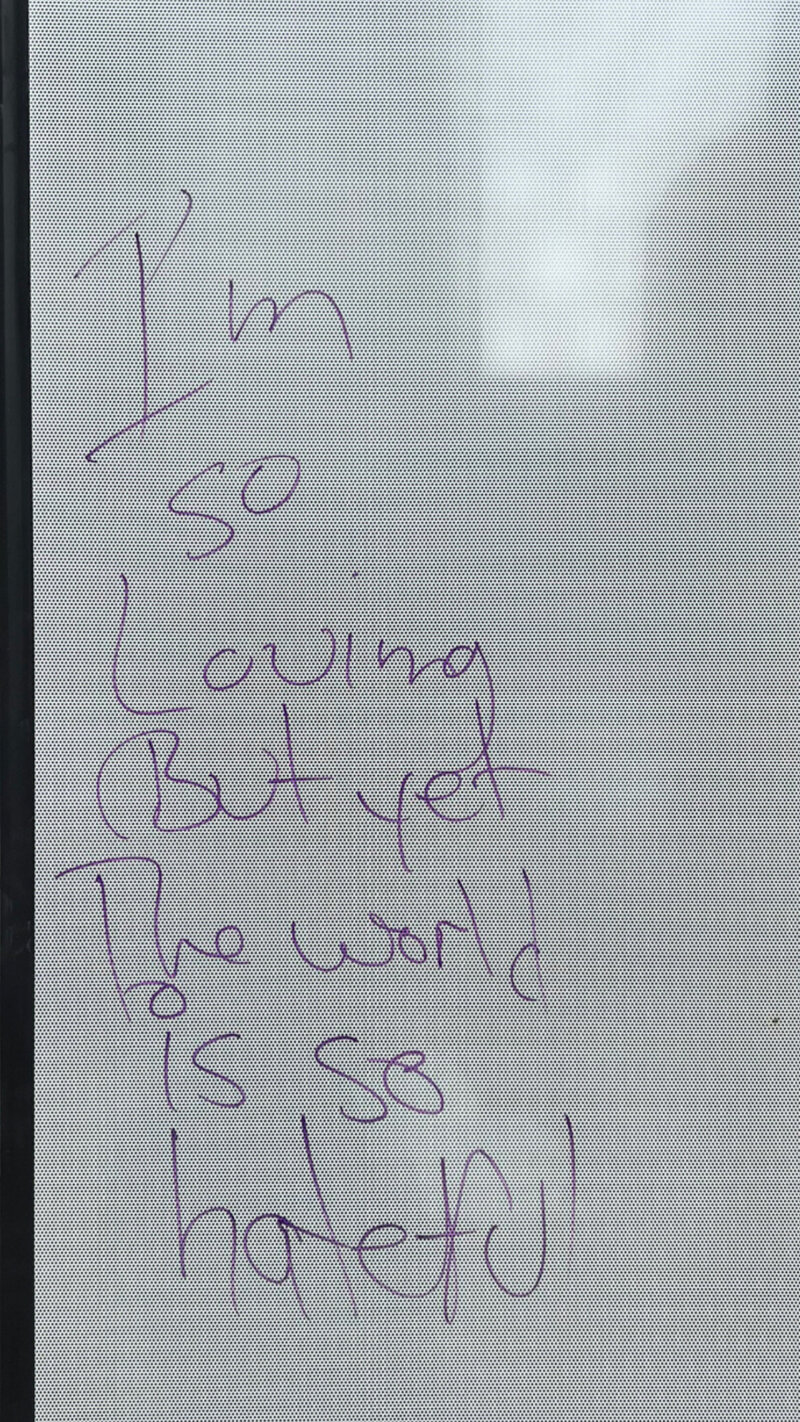 I'm
so
Loving
But yet
The world
is so
hateful